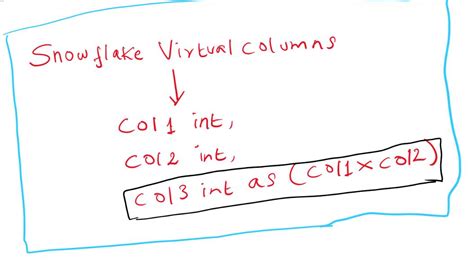 Snowflake Virtual columns
col1 int,
col2 int,
col3 int as (col1×col2)